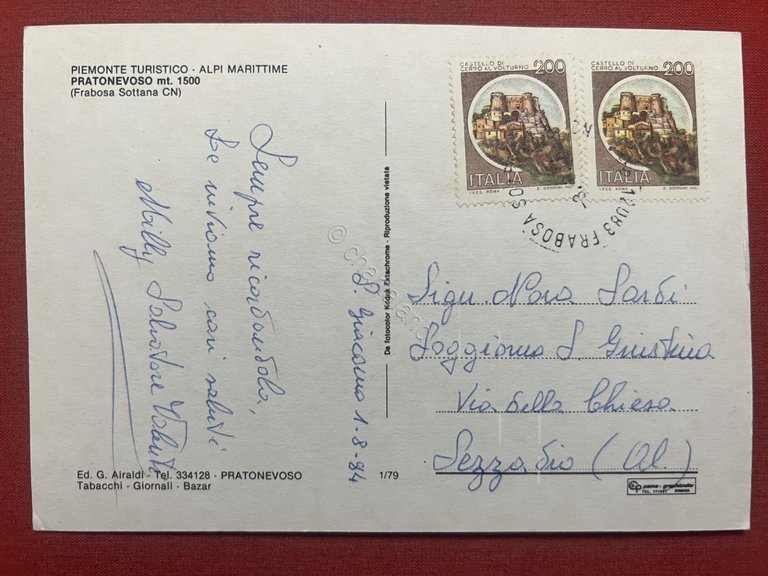 PIEMONTE TURISTICO - ALPI MARITTIME
PRATONEVOSO mt. 1500
(Frabosa Sottana CN)
Sempre ricordandola,
Le inviamo cari saluti
Milly Salvatore
S. Giacomo 1-8-84
Ed. G. Airaldi - Tel. 334128 - PRATONEVOSO
Tabacchi - Giornali - Bazar
1/79
Da fotocolor Kodak Ektachrome - Riproduzione vietata
CASTELLO DI
CERRO AL VOLTURNO
200
ITALIA
I.P.Z.S. ROMA
E. DONNINI INC.
CASTELLO DI
CERRO AL VOLTURNO
200
ITALIA
I.P.Z.S. ROMA
E. DONNINI INC.
12083 FRABOSA
Sign. Nora Sardi
Soggiorno S. Giustina
Via della Chiesa
Sezzadio (Al.)